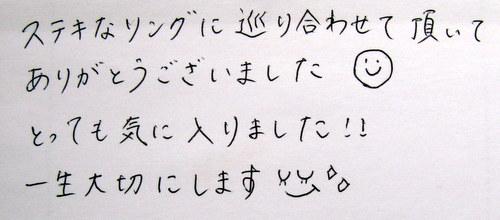 ステキなリングに巡り合わせて頂いて
ありがとうございました
とっても気に入りました!!
一生大切にします